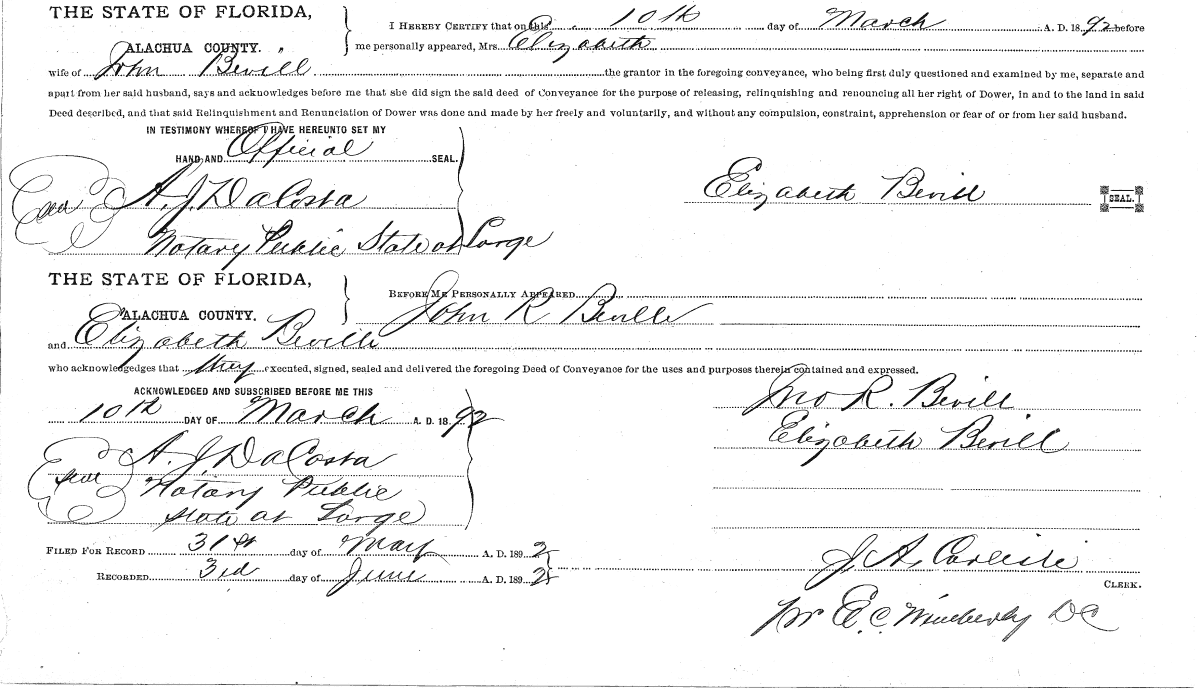 THE STATE OF FLORIDA,
I HEREBY CERTIFY that on this 10th day of March A. D. 1892 before
ALACHUA COUNTY. me personally appeared, Mrs. Elizabeth
wife of John Bevill the grantor in the foregoing conveyance, who being first duly questioned and examined by me, separate and
apart from her said husband, says and acknowledges before me that she did sign the said deed of Conveyance for the purpose of releasing, relinquishing and renouncing all her right of Dower, in and to the land in said
Deed described, and that said Relinquishment and Renunciation of Dower was done and made by her freely and voluntarily, and without any compulsion, constraint, apprehension or fear of or from her said husband.
IN TESTIMONY WHEREOF I HAVE HEREUNTO SET MY
HAND AND Official SEAL.
Seal A. J. DaCosta
Elizabeth Bevill SEAL.
Notary Public State at Large
THE STATE OF FLORIDA,
BEFORE ME PERSONALLY APPEARED
ALACHUA COUNTY. John R Beville
and Elizabeth Beville
who acknowledges that they executed, signed, sealed and delivered the foregoing Deed of Conveyance for the uses and purposes therein contained and expressed.
ACKNOWLEDGED AND SUBSCRIBED BEFORE ME THIS
10th DAY OF March A. D. 1892
Jno R. Bevill
Elizabeth Bevill
Seal A. J. DaCosta
Notary Public
State at Large
FILED FOR RECORD 31st day of May A. D. 1892
RECORDED 3rd day of June A. D. 1892
J A, Carlisle
CLERK.
pr E. C. Wimberly DC